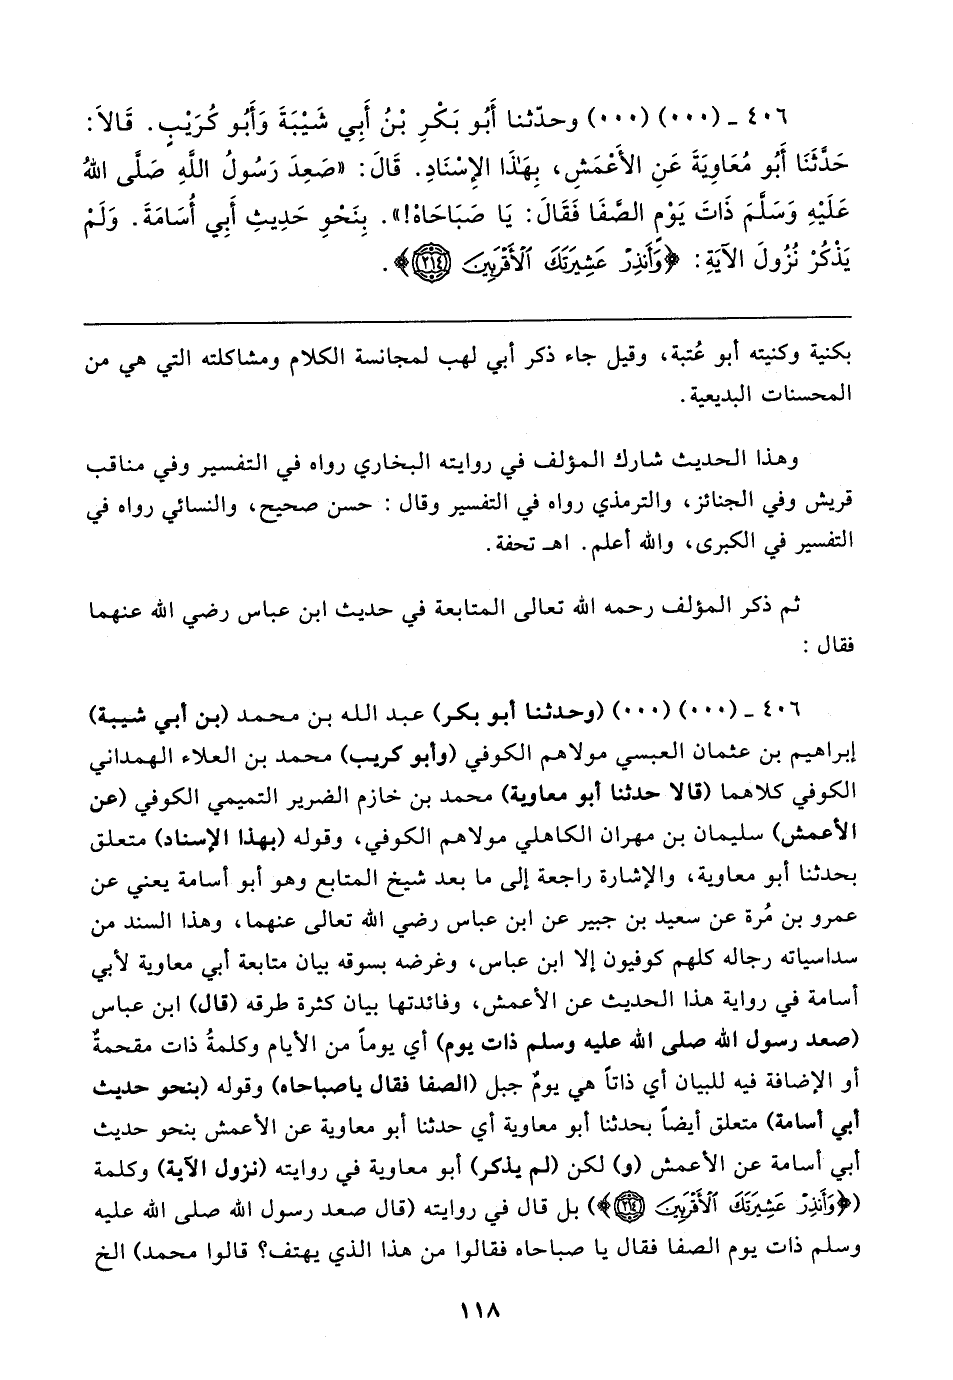 ٤٠٦ ـ (٠٠٠) (٠٠٠) وحدّثنا أَبُو بَكْرِ بْنُ أَبِي شَيْبَةَ وَأَبُو كُرَيْبٍ. قَالاَ:
حَدَّثَنَا أَبُو مُعَاوِيَةَ عَنِ الأَعْمَشِ، بِهَذَا الإِسْنَادِ. قَالَ: «صَعِدَ رَسُولُ اللَّهِ صَلَّى اللهُ
عَلَيْهِ وَسَلَّمَ ذَاتَ يَوْمٍ الصَّفَا فَقَالَ: يَا صَبَاحَاهْ!». بِنَحْوِ حَدِيثِ أَبِي أُسَامَةَ. وَلَمْ
يَذْكُرْ نُزُولَ الآيَةِ: ﴿وَأَنذِرْ عَشِيرَتَكَ ٱلْأَقْرَبِينَ ٢١٤﴾.
بكنية وكنيته أبو عُتبة، وقيل جاء ذكر أبي لهب لمجانسة الكلام ومشاكلته التي هي من
المحسنات البديعية.
وهذا الحديث شارك المؤلف في روايته البخاري رواه في التفسير وفي مناقب
قريش وفي الجنائز، والترمذي رواه في التفسير وقال : حسن صحيح، والنسائي رواه في
التفسير في الكبرى، والله أعلم. اهـ تحفة.
ثم ذكر المؤلف رحمه الله تعالى المتابعة في حديث ابن عباس رضي الله عنهما
فقال :
٤٠٦ ـ (٠٠٠) (٠٠٠) (وحدثنا أبو بكر) عبد الله بن محمد (بن أبي شيبة)
إبراهيم بن عثمان العبسي مولاهم الكوفي (وأبو كريب) محمد بن العلاء الهمداني
الكوفي كلاهما (قالا حدثنا أبو معاوية) محمد بن خازم الضرير التميمي الكوفي (عن
الأعمش) سليمان بن مهران الكاهلي مولاهم الكوفي، وقوله (بهذا الإسناد) متعلق
بحدثنا أبو معاوية، والإشارة راجعة إلى ما بعد شيخ المتابع وهو أبو أسامة يعني عن
عمرو بن مُرة عن سعيد بن جبير عن ابن عباس رضي الله تعالى عنهما، وهذا السند من
سداسياته رجاله كلهم كوفيون إلا ابن عباس، وغرضه بسوقه بيان متابعة أبي معاوية لأبي
أسامة في رواية هذا الحديث عن الأعمش، وفائدتها بيان كثرة طرقه (قال) ابن عباس
(صعد رسول الله صلى الله عليه وسلم ذات يوم) أي يوماً من الأيام وكلمةُ ذات مقحمةٌ
أو الإضافة فيه للبيان أي ذاتاً هي يومٌ جبل (الصفا فقال ياصباحاه) وقوله (بنحو حديث
أبي أسامة) متعلق أيضاً بحدثنا أبو معاوية أي حدثنا أبو معاوية عن الأعمش بنحو حديث
أبي أسامة عن الأعمش (و) لكن (لم يذكر) أبو معاوية في روايته (نزول الآية) وكلمة
(﴿وَأَنذِرْ عَشِيرَتَكَ ٱلْأَقْرَبِينَ ٢١٤﴾) بل قال في روايته (قال صعد رسول الله صلى الله عليه
وسلم ذات يوم الصفا فقال يا صباحاه فقالوا من هذا الذي يهتف؟ قالوا محمد) الخ
١١٨